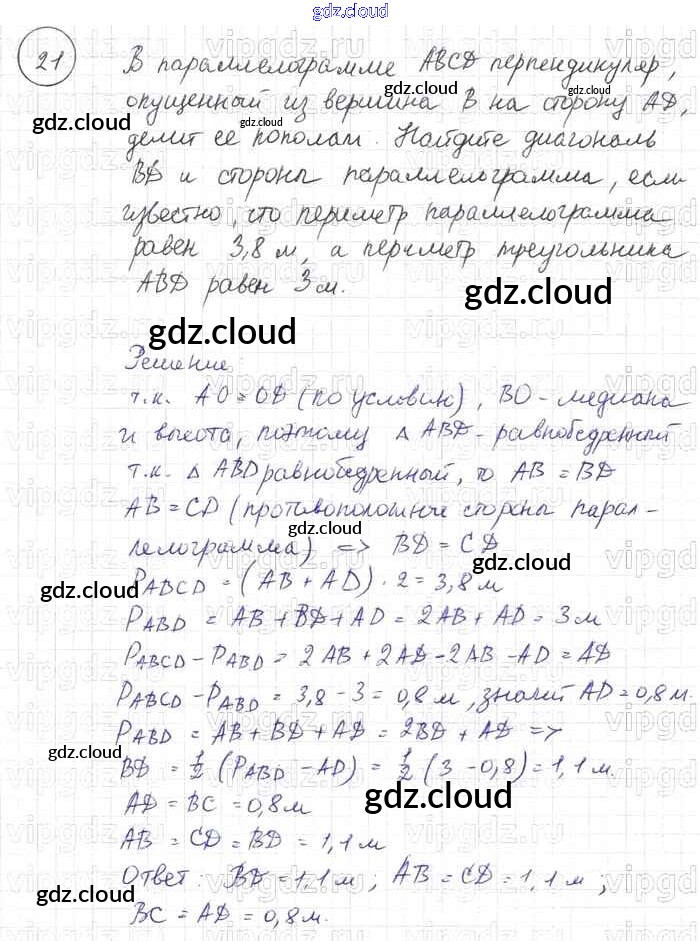 gdz.cloud
21
В параллелограмме ABCD перпендикуляр,
опущенный из вершина B на сторону AD,
gdz.cloud
gdz.cloud
gdz.cloud
делит её пополам. Найдите диагональ
BD и стороны параллелограмма, если
известно, что периметр параллелограмма
равен 3,8 м, а периметр треугольника
ABD равен 3 м.
gdz.cloud
gdz.cloud
Решение:
т.к. AO = OD (по условию), BO - медиана
и высота, поэтому △ ABD - равнобедренный
т.к. △ ABD равнобедренный, то AB = BD
AB = CD (противоположные стороны парал-
gdz.cloud
лелограмма) => BD = CD
gdz.cloud
gdz.cloud
P ABCD = (AB + AD) · 2 = 3,8 м
P ABD = AB + BD + AD = 2AB + AD = 3 м
P ABCD - P ABD = 2AB + 2AD - 2AB - AD = AD
P ABCD - P ABD = 3,8 - 3 = 0,8 м, значит AD = 0,8 м.
P ABD = AB + BD + AD = 2BD + AD =>
gdz.cloud
BD = 1/2 (P ABD - AD) = 1/2 (3 - 0,8) = 1,1 м.
gdz.cloud
AD = BC = 0,8 м
AB = CD = BD = 1,1 м
Ответ: BD = 1,1 м; AB = CD = 1,1 м;
gdz.cloud
gdz.cloud
BC = AD = 0,8 м.